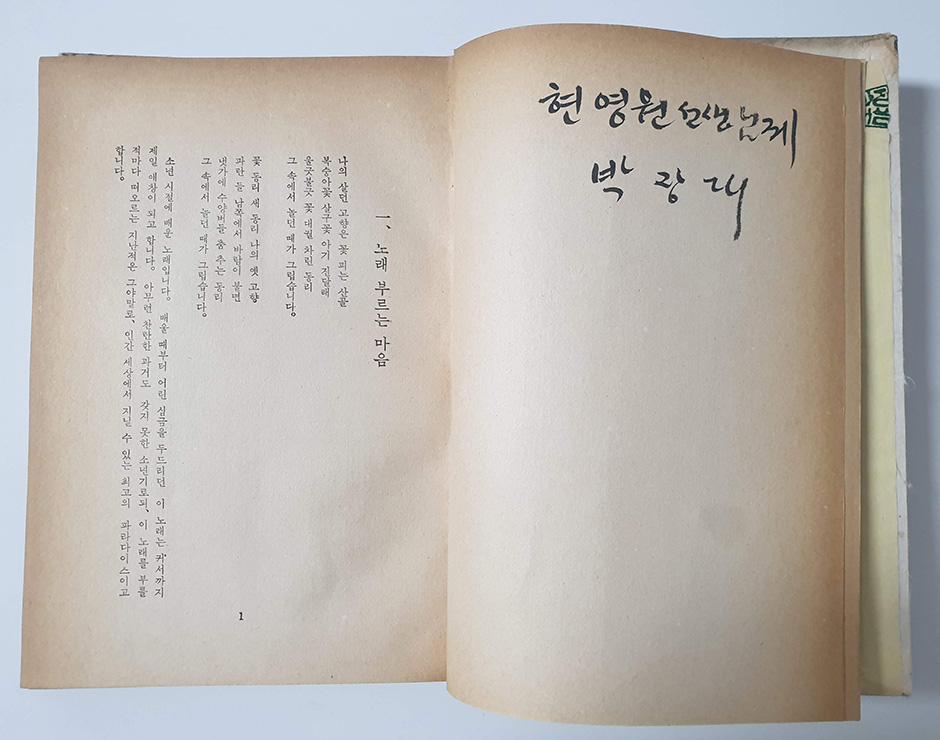 현 영원 선생님께
박
一、 노래 부르는 마음
나의 살던 고향은 꽃 피는 산골
복숭아꽃 살구꽃 아기 진달래
울긋불긋 꽃 대궐 차린 동리
그 속에서 놀던 때가 그립습니다。
꽃 동리 새 동리 나의 옛 고향
파란 들 남쪽에서 바람이 불면
냇가에 수양버들 춤 추는 동리
그 속에서 놀던 때가 그립습니다。
소년 시절에 배운 노래입니다。 배울 때부터 어린 심금을 두드리던 이 노래는 커서까지
제일 애창이 되고 합니다。 아무런 찬란한 과거도 갖지 못한 소년기로되、 이 노래를 부를
적마다 떠오르는 지난적은 그야말로、 인간 세상에서 지닐 수 있는 최고의 파라다이스이고
합니다。
1